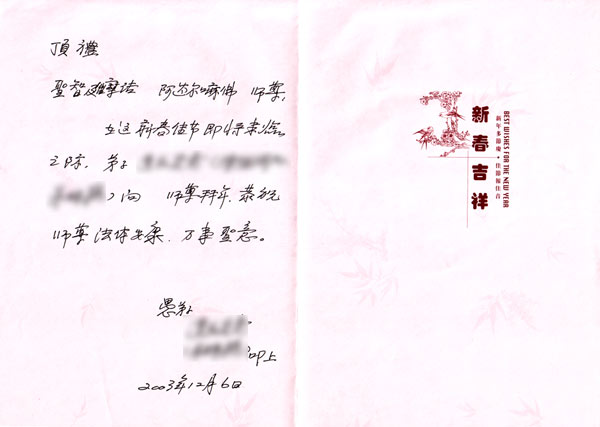 頂禮
聖智维摩诘 阿达尔嘛佛 师尊,
在这新春佳节即将来临
之际,弟子
)向 师尊拜年,恭祝
师尊法体安康,万事意。
愚弟
叩上
2003年12月6日
新春吉祥
新年多節慶·佳節報佳音
BEST WISHES FOR THE NEW YEAR